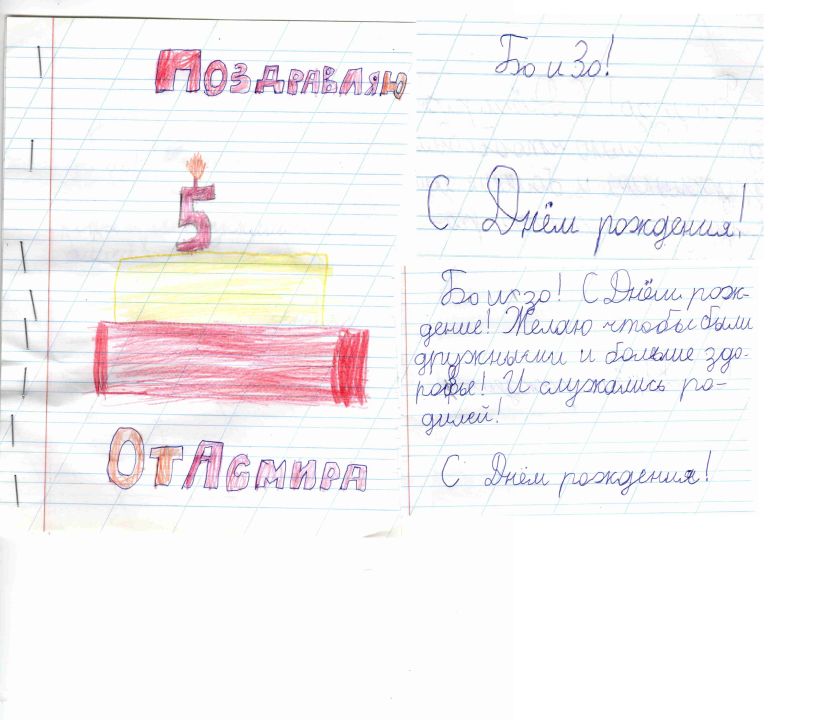 Поздравляю
5
От Асмира
Бо и Зо!
С Днём рождения!
Бо и зо! С Днём рож-
дение! Желаю чтобы были
дружными и больше здо-
ровье! И служались ро-
дилей!
С Днём рождения!